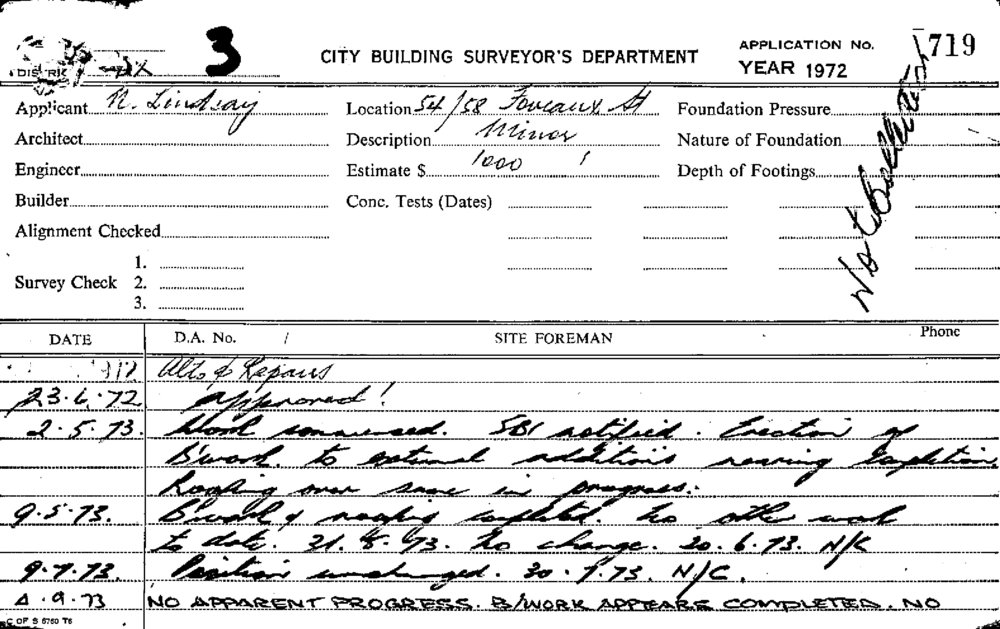 3
CITY BUILDING SURVEYOR'S DEPARTMENT
APPLICATION No. 1719
YEAR 1972
DISTRICT
Applicant N. Lindsay
Location 54/58 Foveaux St
Foundation Pressure
Architect
Description Minor
Nature of Foundation
Engineer
Estimate $ 1000
Depth of Footings
Builder
Conc. Tests (Dates)
Alignment Checked
Survey Check 1.
2.
3.
No
DATE D.A. No. / SITE FOREMAN Phone
Alts & Repairs
23.6.72 Approved!
2.5.73. Work commenced. SBI notified. Erection of
B'work to external additions nearing completion.
Roofing over same in progress.
9.5.73. B'work & roofing completed. No other work
to date. 31. 73. No change. 20.6.73. N/C
9.7.73. Position unchanged. 30.7.73. N/C.
4.9.73 NO APPARENT PROGRESS. B/WORK APPEARS COMPLETED. NO
C OF S 6760 T6